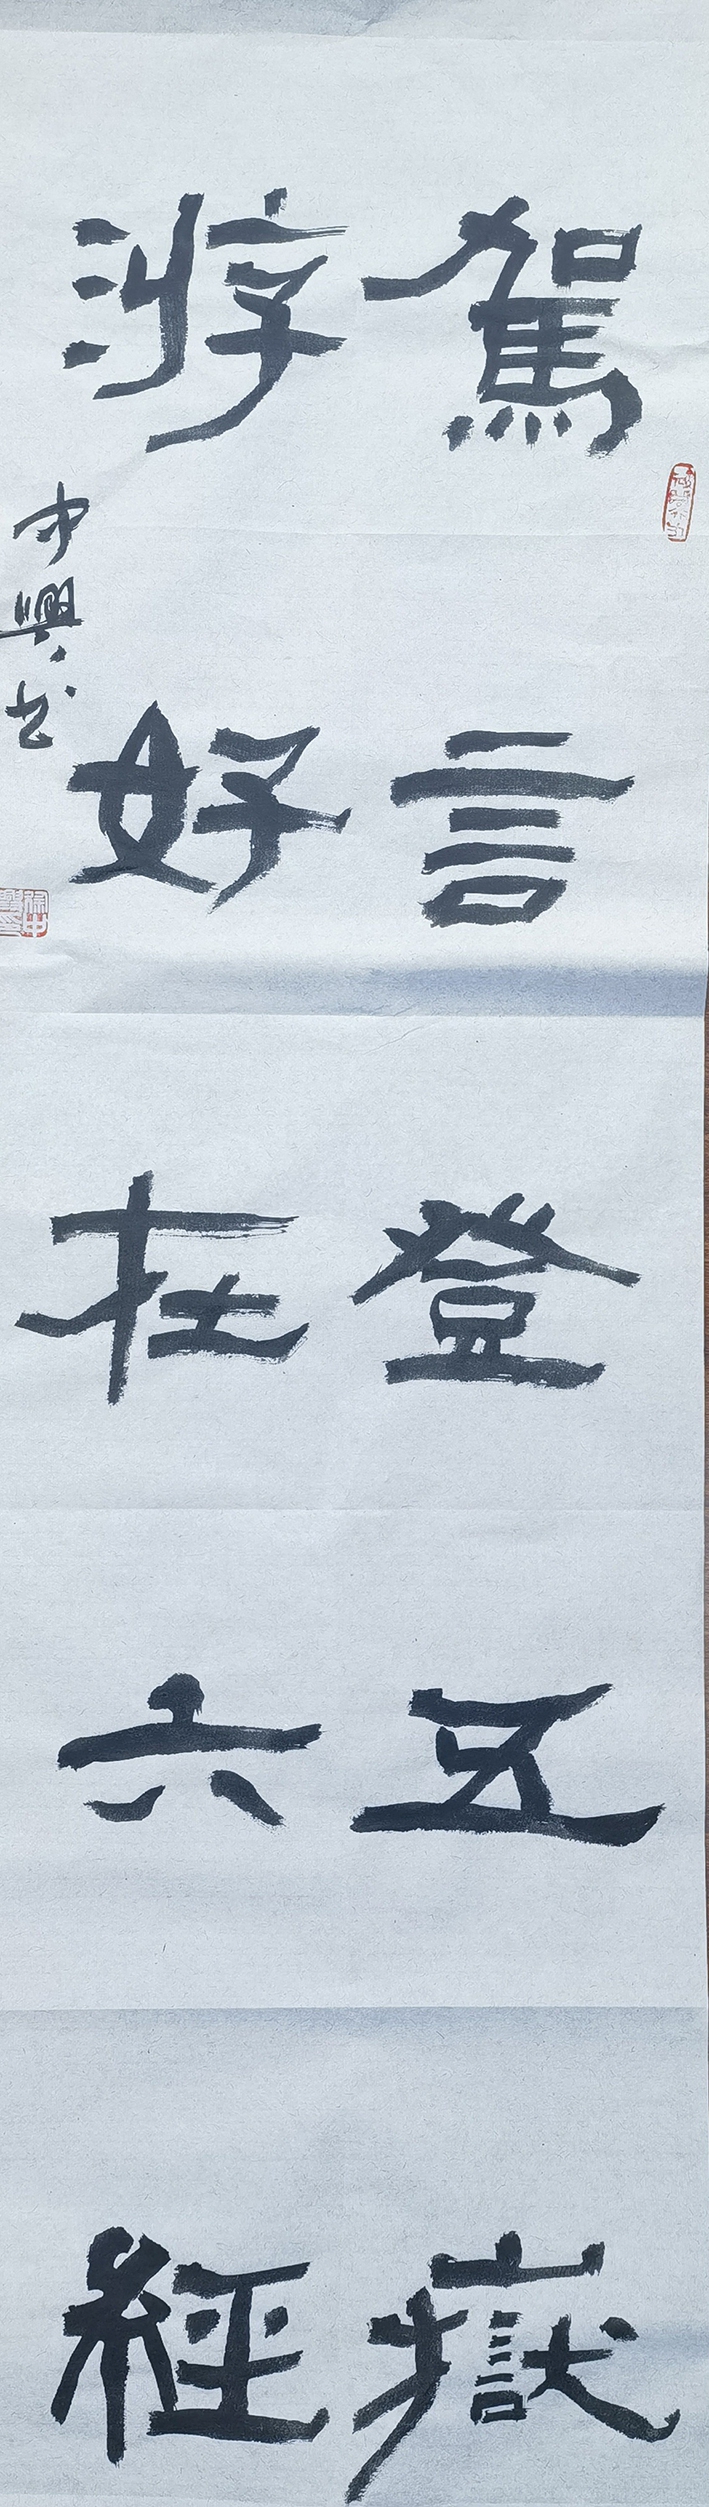 駕言登五嶽
游好在六經
中興书